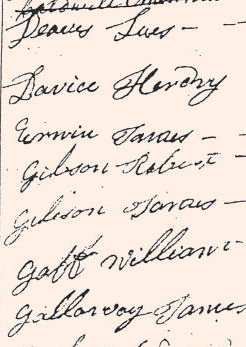 Davice Hendry
Erwin James —
Gibson Robert —
Gibson James —
Gaff William
Galloway James